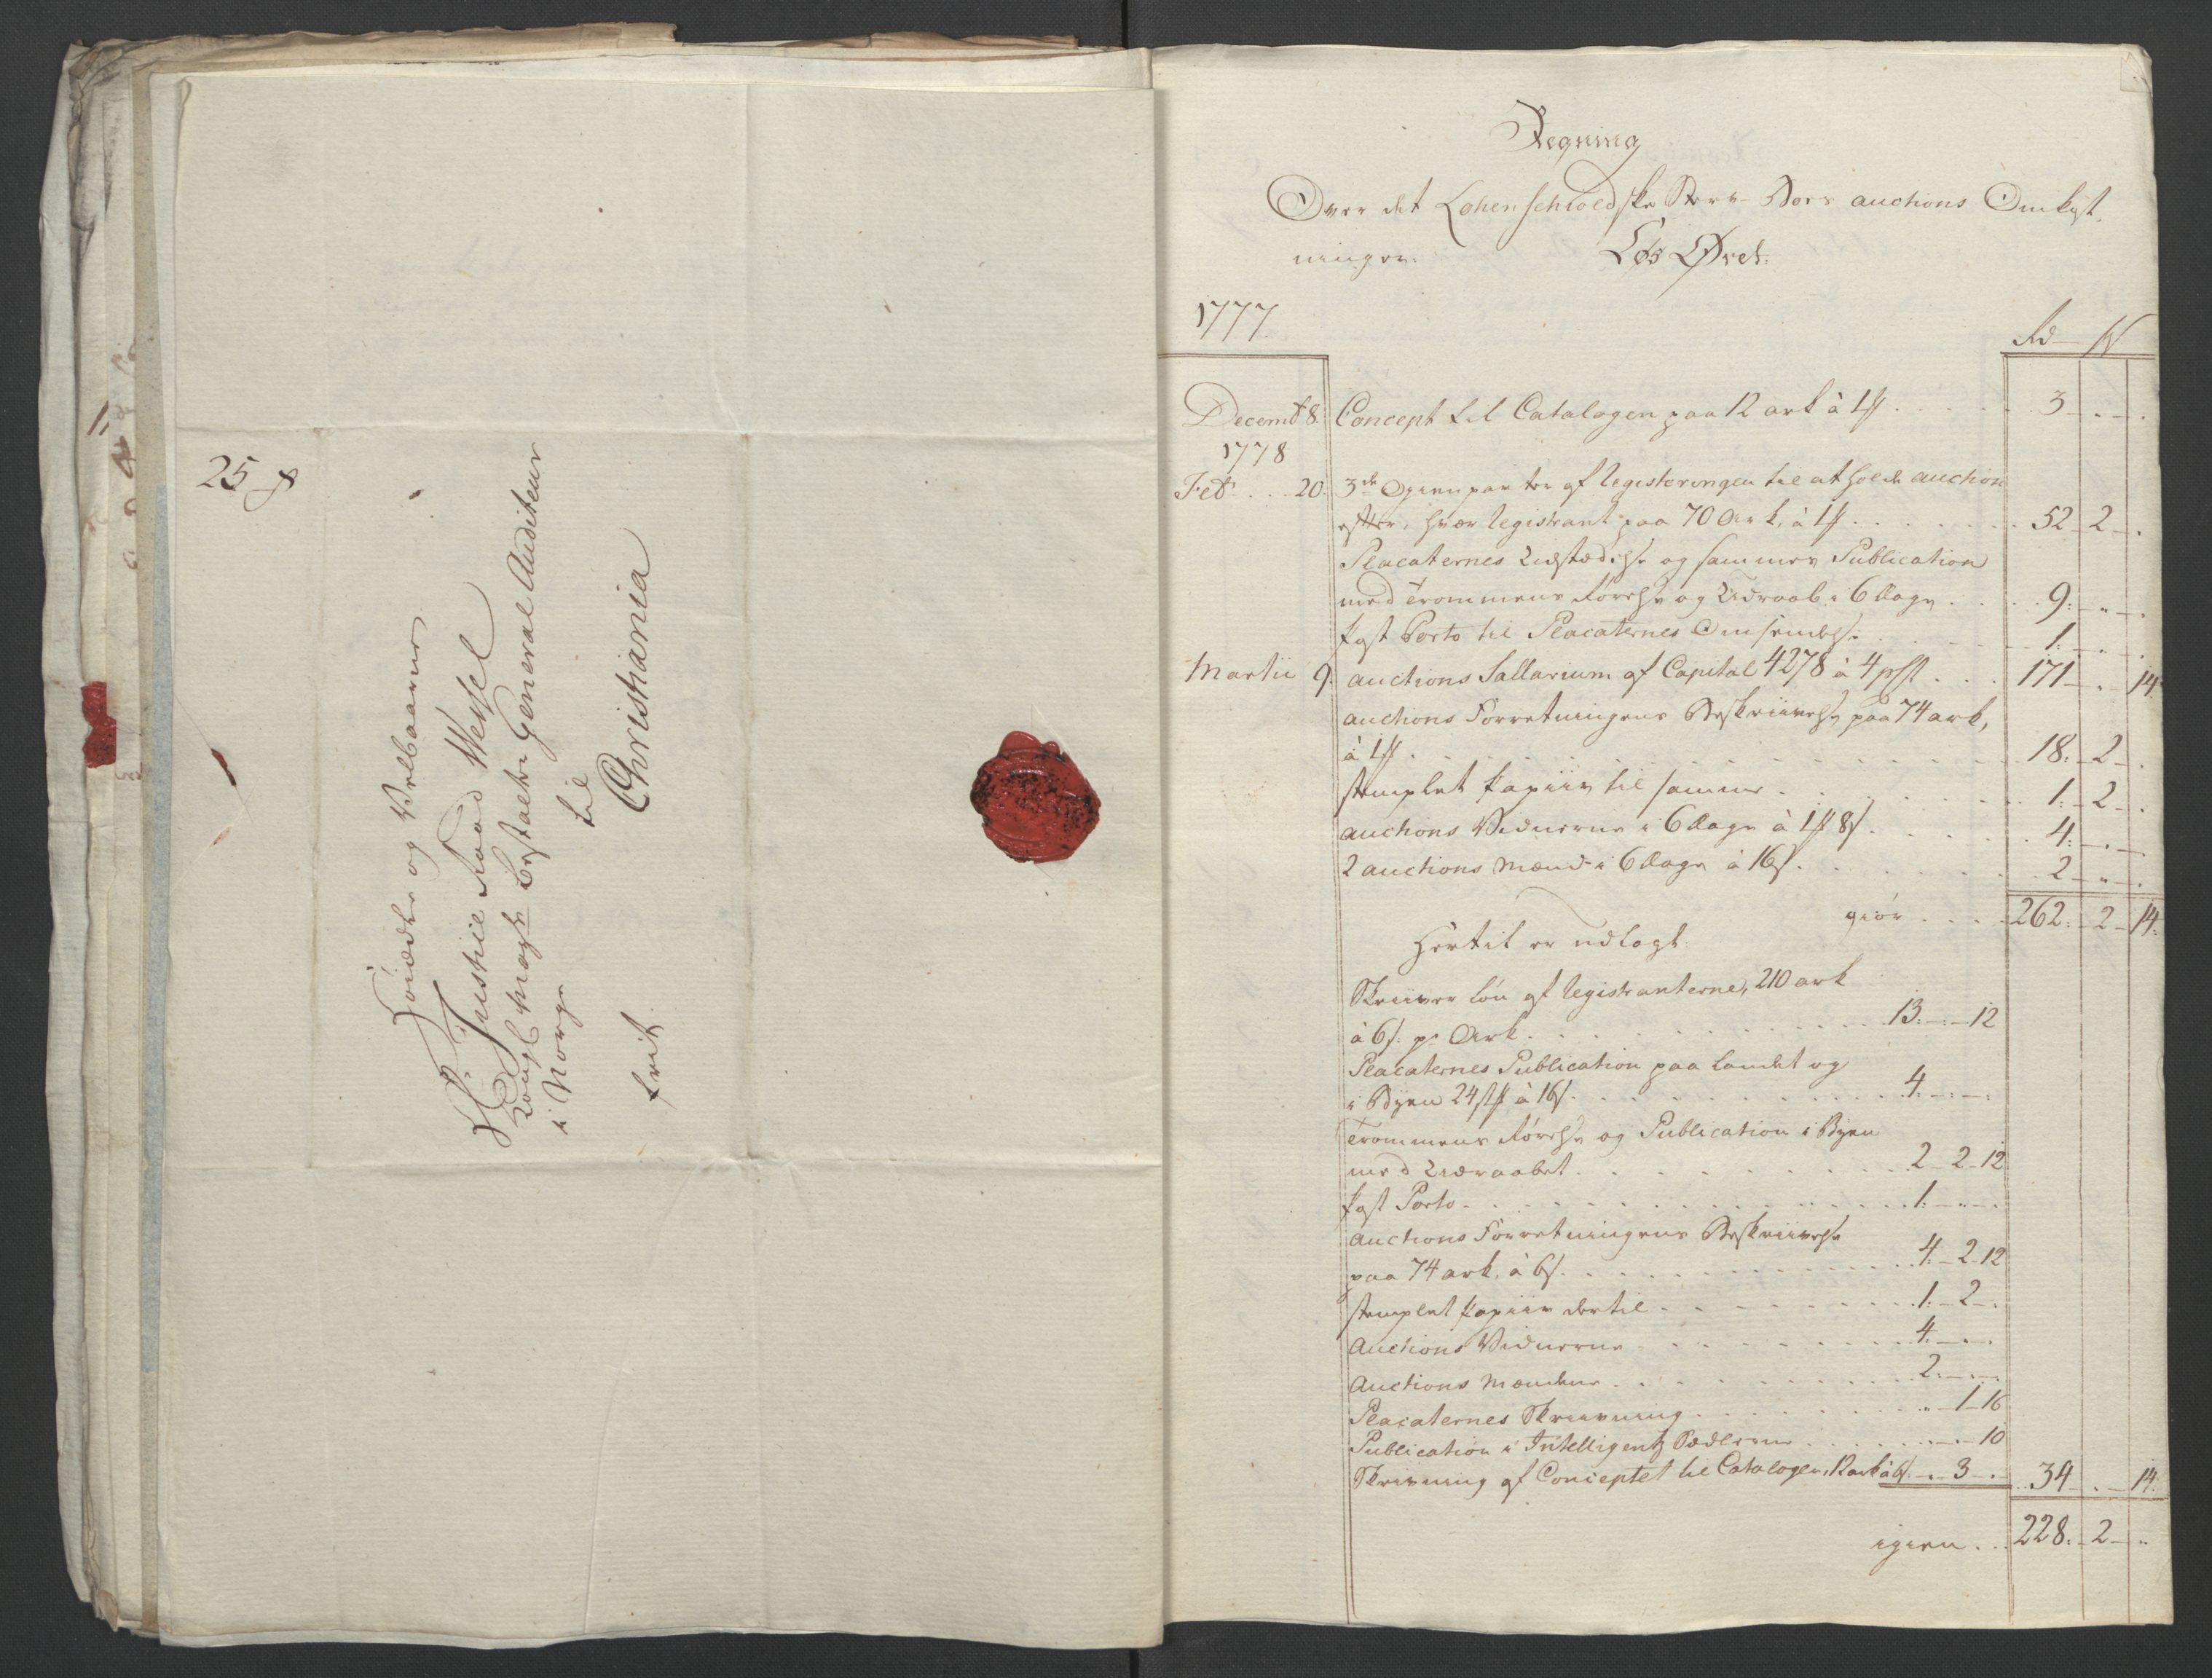 25 ß
Høiædle og Velbaarne
Hr. Justice Raad Wessel
Kongl Mayts Bestaltr General Auditeur
i Norge
til
Christiania
frit.
Regning
Over det Lohenschioldske Sterv-Boes auctions Omkost-
ninger.
Løs Øret.
1777
Rd ß
Decembr 8. Concept til Catalogen paa 12 ark à 1 ß 3 " "
1778
Febr. 20. 3de Gienparter af Registeringen til at holde auction
efter, hver Registrant paa 70 Ark, à 1 ß 52 2 .
Placaternes Udstædelse og sammes Publication
med Trommens Rørelse og Udraab i 6 Dage 9. " .
Post Porto til Placaternes Omsendelse 1. " .
Martii 9. auctions Sallarium af Capital 4278 à 4 pCt 171 . 14.
auctions Forretningens Beskrivelse paa 74 ark,
à 1 ß 18. 2 .
stemplet Papiir til samme 1. 2 .
auctions Vidnerne i 6 Dage à 1 ß 8 s. 4. . .
2 auctions Mænd i 6 Dage à 16 s. 2 " .
giør 262. 2 14.
Hertil er udlagt.
Skriver Løn af Registranterne, 210 ark
à 6 s. pr Ark 13. . 12
Placaternes Publication paa Landet og
i Byen 24 stk à 16 s. 4. . .
Trommens Rørelse og Publication i Byen
med Udraabet 2 2 12
Post Porto 1. " .
Auctions Forretningens Beskrivelse
paa 74 ark, à 6 s. 4. 2 12
stemplet Papiir dertil 1. 2 .
Auctions Vidnerne 4. . .
Auctions Mændene 2. . .
Placaternes Skrivning " 1 16
Publication i Intelligentz Sædlerne . . 10
Skrivning af Conceptet til Catalogen, 12 ark à 6 s. . 3 . 34 . 14.
igien 228. 2 "